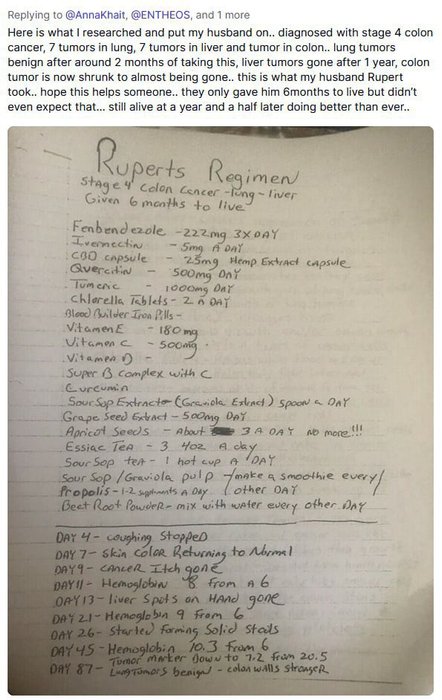 Replying to @AnnaKhait, @ENTHEOS, and 1 more
Here is what I researched and put my husband on.. diagnosed with stage 4 colon
cancer, 7 tumors in lung, 7 tumors in liver and tumor in colon.. lung tumors
benign after around 2 months of taking this, liver tumors gone after 1 year, colon
tumor is now shrunk to almost being gone.. this is what my husband Rupert
took.. hope this helps someone.. they only gave him 6months to live but didn't
even expect that... still alive at a year and a half later doing better than ever..
Ruperts Regimen
Stage 4 Colon Cancer - lung - liver
Given 6 months to live
Fenbendezole - 222mg 3X DAY
Ivermectin - 5mg A DAY
CBD CAPSULE - 25mg Hemp Extract capsule
Quercitin - 500mg DAY
Tumeric - 1000mg DAY
Chlorella Tablets - 2 A DAY
Blood Builder Iron Pills -
Vitamen E - 180mg
Vitamen C - 500mg
Vitamen D -
Super B complex with C
Curcumin
Sour Sop Extract (Graviola Extract) spoon a DAY
Grape Seed Extract - 500mg DAY
Apricot Seeds - About 3 A DAY NO more!!!
Essiac Tea - 3 4oz A day
Sour Sop tea - 1 hot cup A DAY
Sour Sop / Graviola pulp - make a smoothie every
other DAY
Propolis - 1-2 supliments a Day
Beet Root Powder - mix with water every other DAY
DAY 4 - coughing Stopped
DAY 7 - Skin color Returning to Normal
DAY 9 - cancer Itch gone
DAY 11 - Hemoglobin 8 from a 6
DAY 13 - liver Spots on HAND gone
DAY 21 - Hemoglobin 9 from 6
DAY 26 - Started forming Solid Stools
DAY 45 - Hemoglobin 10.3 from 6
Tumor marker down to 7.2 from 20.5
DAY 87 - Lung Tumors benign - colon walls stronger